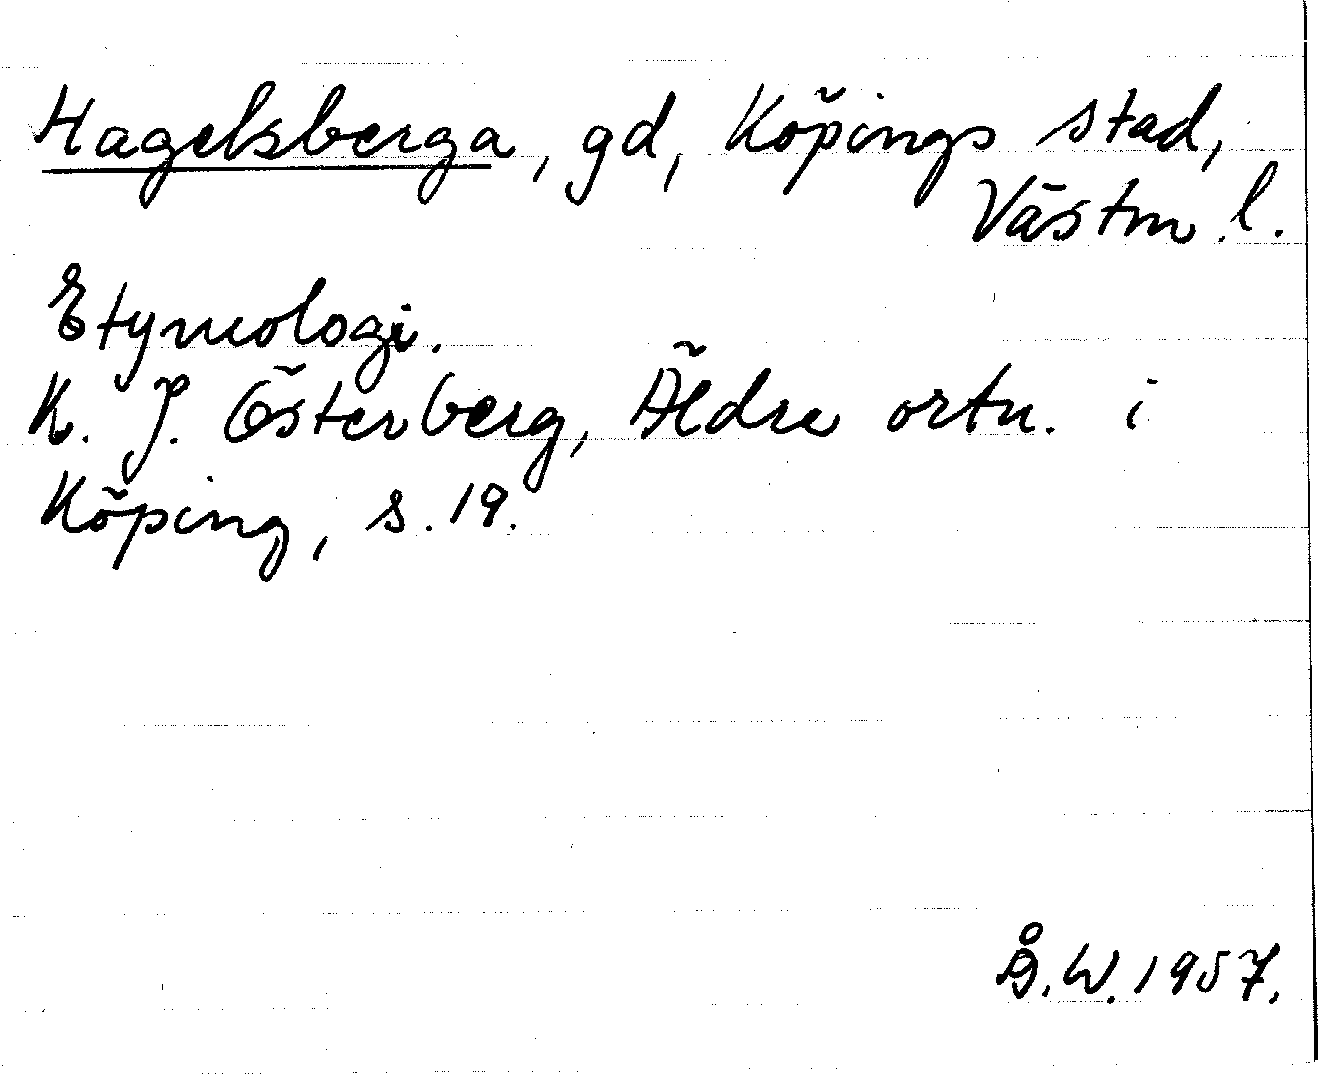 Hagelsberga, gd, Köpings stad,
Västm. l.
Etymologi.
K. J. Österberg, Äldre ortn. i
Köping, s. 19.
Å. W. 1957.